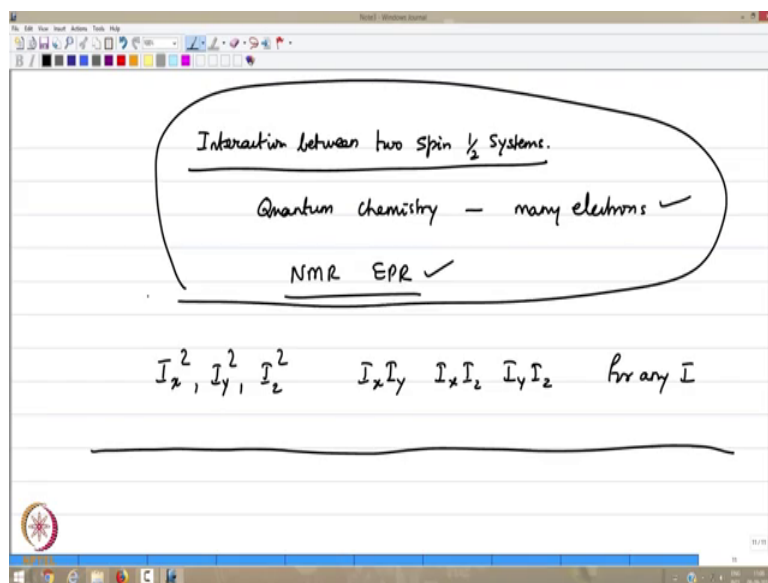 Note1 - Windows Journal
File Edit View Insert Actions Tools Help
B I
Interaction between two spin ½ systems.
Quantum chemistry — many electrons ✓
NMR EPR ✓
I_x², I_y², I_z² I_xI_y I_xI_z I_yI_z for any I
NPTEL
11/11
11